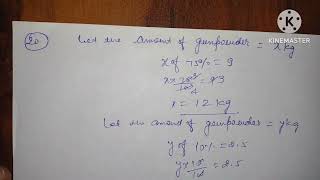 20 Let the amount of gunpowder = x kg
x of 75% = 9
x × 75 3 / 100 4 = 9 3
x = 12 kg
Let the amount of gunpowder = y kg
y of 10% = 2.5
y × 10 / 10 = 2.5
KINEMASTER